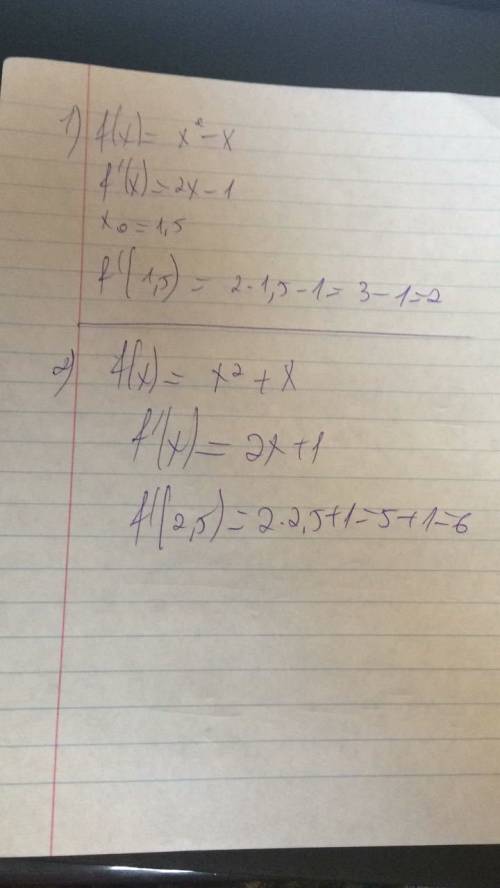 1) f(x) = x² - x
f'(x) = 2x - 1
x₀ = 1,5
f'(1,5) = 2·1,5 - 1 = 3 - 1 = 2
2) f(x) = x² + x
f'(x) = 2x + 1
f'(2,5) = 2·2,5 + 1 = 5 + 1 = 6